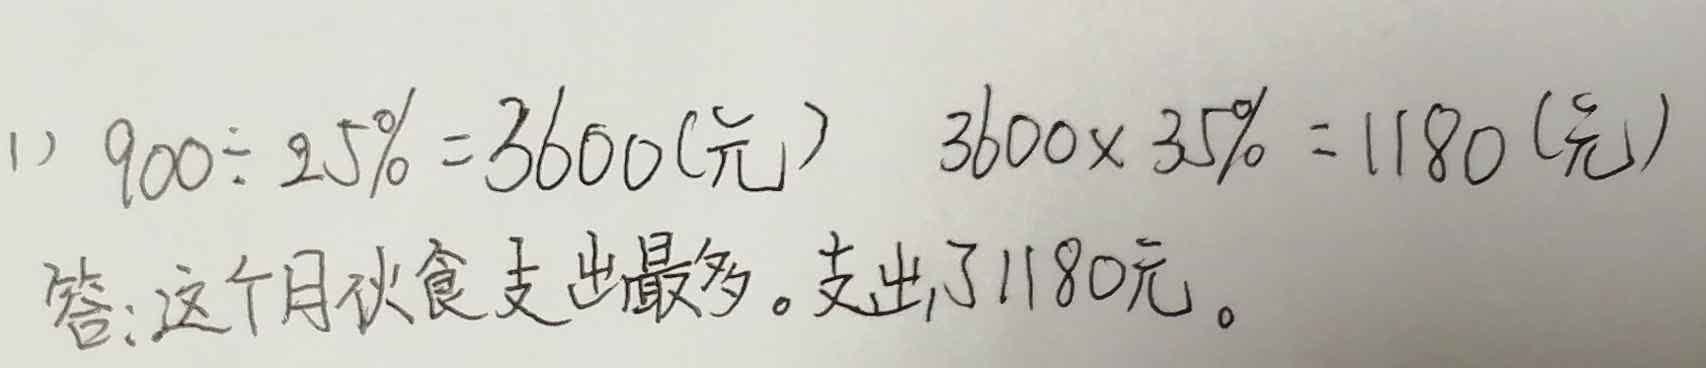 1) 900÷25%=3600(元) 3600×35%=1180(元)
答:这个月伙食支出最多。支出了1180元。